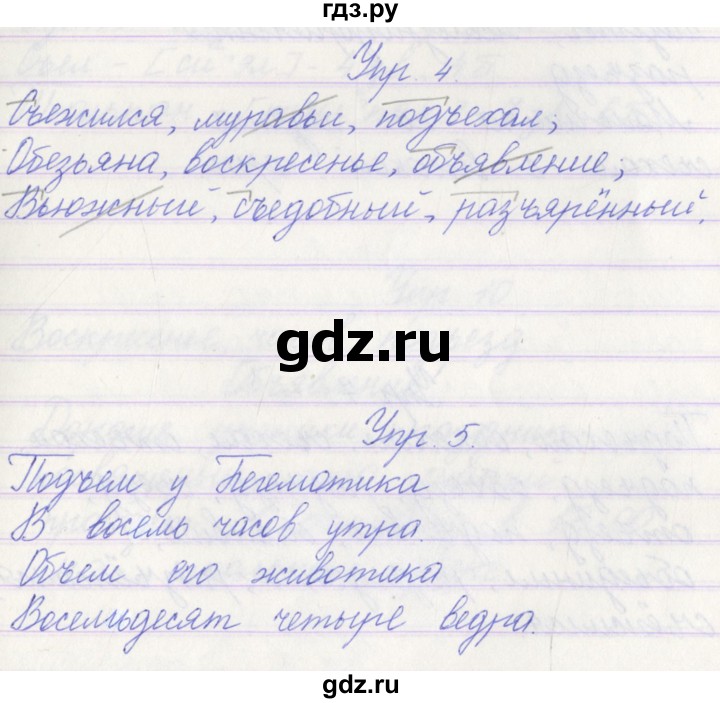 гдз.ру
Упр. 4.
Съежился, муравьи, подъехал;
Обезьяна, воскресенье, объявление;
Вьюжный, съедобный, разъярённый.
gdz.ru
Упр. 5.
Подъем у Бегемотика
В восемь часов утра.
Объем его животика
Восемьдесят четыре ведра.
gdz.ru